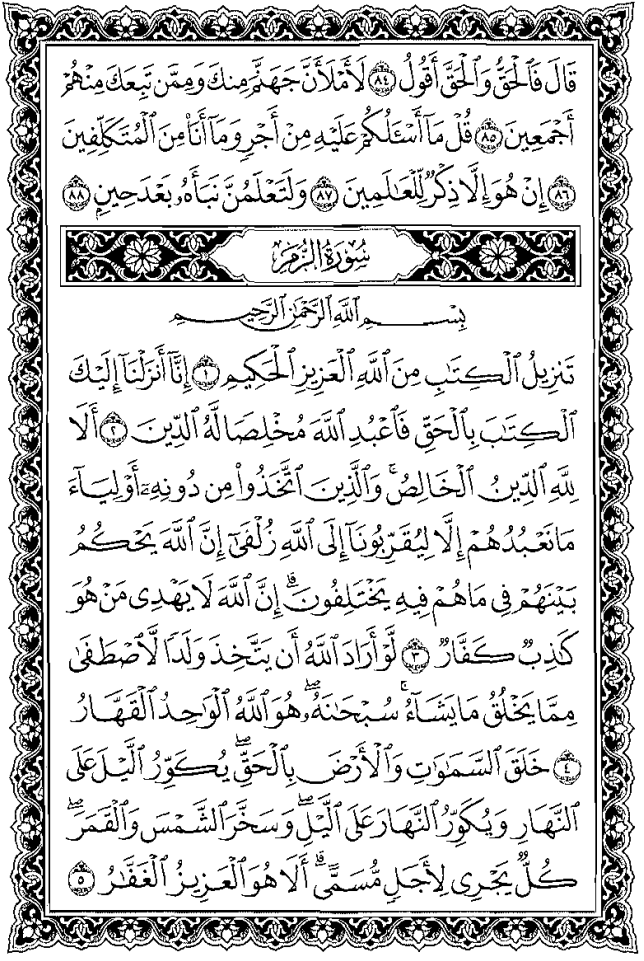 قَالَ فَٱلْحَقُّ وَٱلْحَقَّ أَقُولُ ٨٤ لَأَمْلَأَنَّ جَهَنَّمَ مِنكَ وَمِمَّن تَبِعَكَ مِنْهُمْ
أَجْمَعِينَ ٨٥ قُلْ مَآ أَسْـَٔلُكُمْ عَلَيْهِ مِنْ أَجْرٍ وَمَآ أَنَا۠ مِنَ ٱلْمُتَكَلِّفِينَ
٨٦ إِنْ هُوَ إِلَّا ذِكْرٌ لِّلْعَـٰلَمِينَ ٨٧ وَلَتَعْلَمُنَّ نَبَأَهُۥ بَعْدَ حِينٍۭ ٨٨
سُورَةُ الزُّمَرِ
بِسْمِ ٱللَّهِ ٱلرَّحْمَـٰنِ ٱلرَّحِيمِ
تَنزِيلُ ٱلْكِتَـٰبِ مِنَ ٱللَّهِ ٱلْعَزِيزِ ٱلْحَكِيمِ ١ إِنَّآ أَنزَلْنَآ إِلَيْكَ
ٱلْكِتَـٰبَ بِٱلْحَقِّ فَٱعْبُدِ ٱللَّهَ مُخْلِصًا لَّهُ ٱلدِّينَ ٢ أَلَا
لِلَّهِ ٱلدِّينُ ٱلْخَالِصُ ۚ وَٱلَّذِينَ ٱتَّخَذُوا۟ مِن دُونِهِۦٓ أَوْلِيَآءَ
مَا نَعْبُدُهُمْ إِلَّا لِيُقَرِّبُونَآ إِلَى ٱللَّهِ زُلْفَىٰٓ إِنَّ ٱللَّهَ يَحْكُمُ
بَيْنَهُمْ فِى مَا هُمْ فِيهِ يَخْتَلِفُونَ ۗ إِنَّ ٱللَّهَ لَا يَهْدِى مَنْ هُوَ
كَـٰذِبٌ كَفَّارٌ ٣ لَّوْ أَرَادَ ٱللَّهُ أَن يَتَّخِذَ وَلَدًا لَّٱصْطَفَىٰ
مِمَّا يَخْلُقُ مَا يَشَآءُ ۚ سُبْحَـٰنَهُۥ ۖ هُوَ ٱللَّهُ ٱلْوَٰحِدُ ٱلْقَهَّارُ
٤ خَلَقَ ٱلسَّمَـٰوَٰتِ وَٱلْأَرْضَ بِٱلْحَقِّ ۖ يُكَوِّرُ ٱلَّيْلَ عَلَى
ٱلنَّهَارِ وَيُكَوِّرُ ٱلنَّهَارَ عَلَى ٱلَّيْلِ ۖ وَسَخَّرَ ٱلشَّمْسَ وَٱلْقَمَرَ ۖ
كُلٌّ يَجْرِى لِأَجَلٍ مُّسَمًّى ۗ أَلَا هُوَ ٱلْعَزِيزُ ٱلْغَفَّـٰرُ ٥